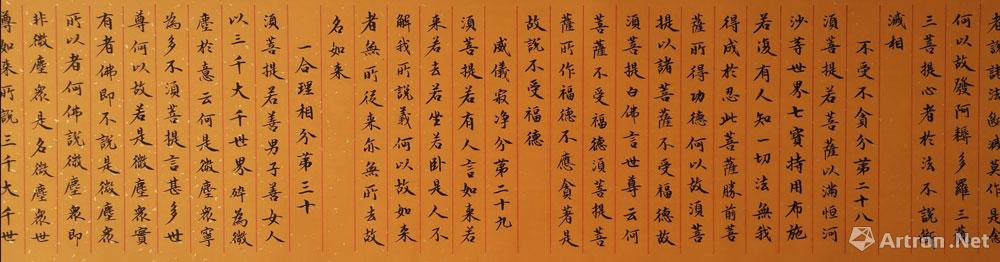 者説諸法斷滅莫作是念
何以故發阿耨多羅三藐
三菩提心者於法不説斷
滅相
不受不貪分第二十八
須菩提若菩薩以滿恒河
沙等世界七寶持用布施
若復有人知一切法無我
得成於忍此菩薩勝前菩
薩所得功德何以故須菩
提以諸菩薩不受福德故
須菩提白佛言世尊云何
菩薩不受福德須菩提菩
薩所作福德不應貪著是
故説不受福德
威儀寂净分第二十九
須菩提若有人言如来若
来若去若坐若卧是人不
解我所説義何以故如来
者無所從来亦無所去故
名如来
一合理相分第三十
須菩提若善男子善女人
以三千大千世界碎為微
塵於意云何是微塵衆寧
為多不須菩提言甚多世
尊何以故若是微塵衆實
有者佛即不説是微塵衆
所以者何佛説微塵衆即
非微塵衆是名微塵衆世
尊如来所説三千大千世
Artron.Net